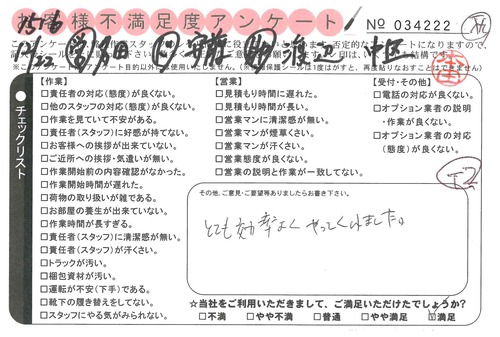 お客様不満足度アンケート
No 034222
【作業】
□責任者の対応(態度)が良くない。
□他のスタッフの対応(態度)が良くない。
□作業を見ていて不安がある。
□責任者(スタッフ)に好感が持てない。
□お客様への挨拶が出来ていない。
□ご近所への挨拶・気遣いが無い。
□作業開始前の内容確認がなかった。
□作業開始時間が遅れた。
□荷物の取り扱いが雑である。
□お部屋の養生が出来ていない。
□作業時間が長すぎる。
□責任者(スタッフ)に清潔感が無い。
□責任者(スタッフ)が汗くさい。
□トラックが汚い。
□梱包資材が汚い。
□運転が不安(下手)である。
□靴下の履き替えをしてない。
□スタッフにやる気がみられない。
【営業】
□見積もり時間に遅れた。
□見積もり時間が長い。
□営業マンに清潔感が無い。
□営業マンが煙草くさい。
□営業マンが汗くさい。
□営業態度が良くない。
□営業の説明と作業が一致してない。
【受付・その他】
□電話の対応が良くない。
□オプション業者の説明
・作業が良くない。
□オプション業者の対応
(態度)が良くない。
チェックリスト
その他、ご意見・ご要望等ありましたらお書き下さい。
とても効率よくやってくれました。
☆当社をご利用いただきまして、ご満足いただけたでしょうか?
□不満 □やや不満 □普通 □やや満足 □満足